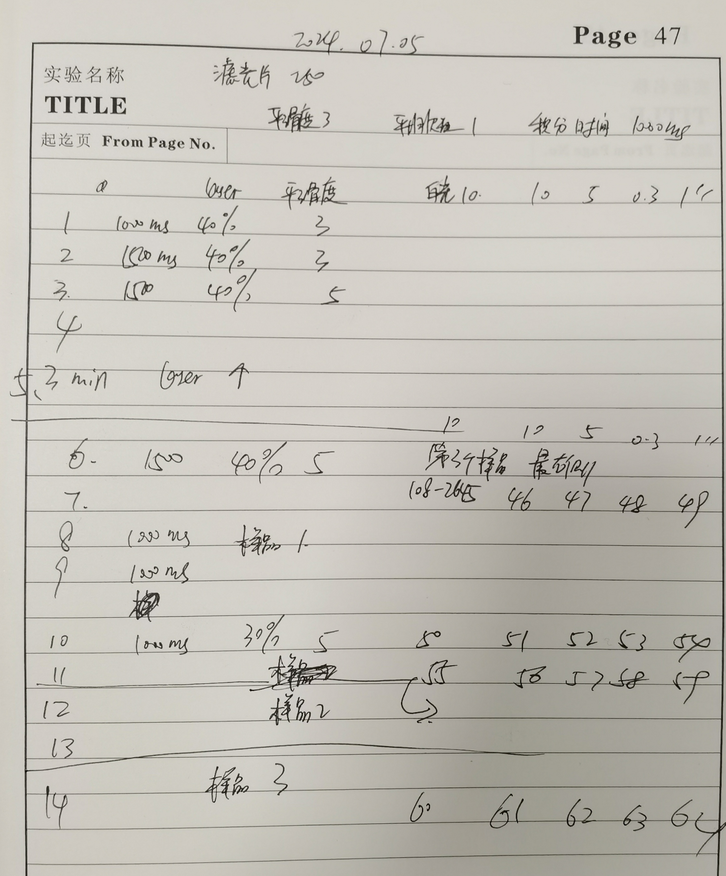 2024.07.05 Page 47
实验名称 滤光片 250
TITLE
平滑度3 平均次数 1 积分时间 1000ms
起迄页 From Page No.
laser 平滑度 白光10. 10 5 0.3 1''
1 1000ms 40% 3
2 1500ms 40% 3
3. 1500 40% 5
4
5. 3 min laser ↑
10 10 5 0.3 1''
6. 1500 40% 5 第3个样品 最右侧
7. 108-2645 46 47 48 49
8 1000 ms 样品 1.
9 1000 ms
10 1000ms 30% 5 50 51 52 53 54
11 55 56 57 58 59
12 样品2
13
样品 3
14 60 61 62 63 64